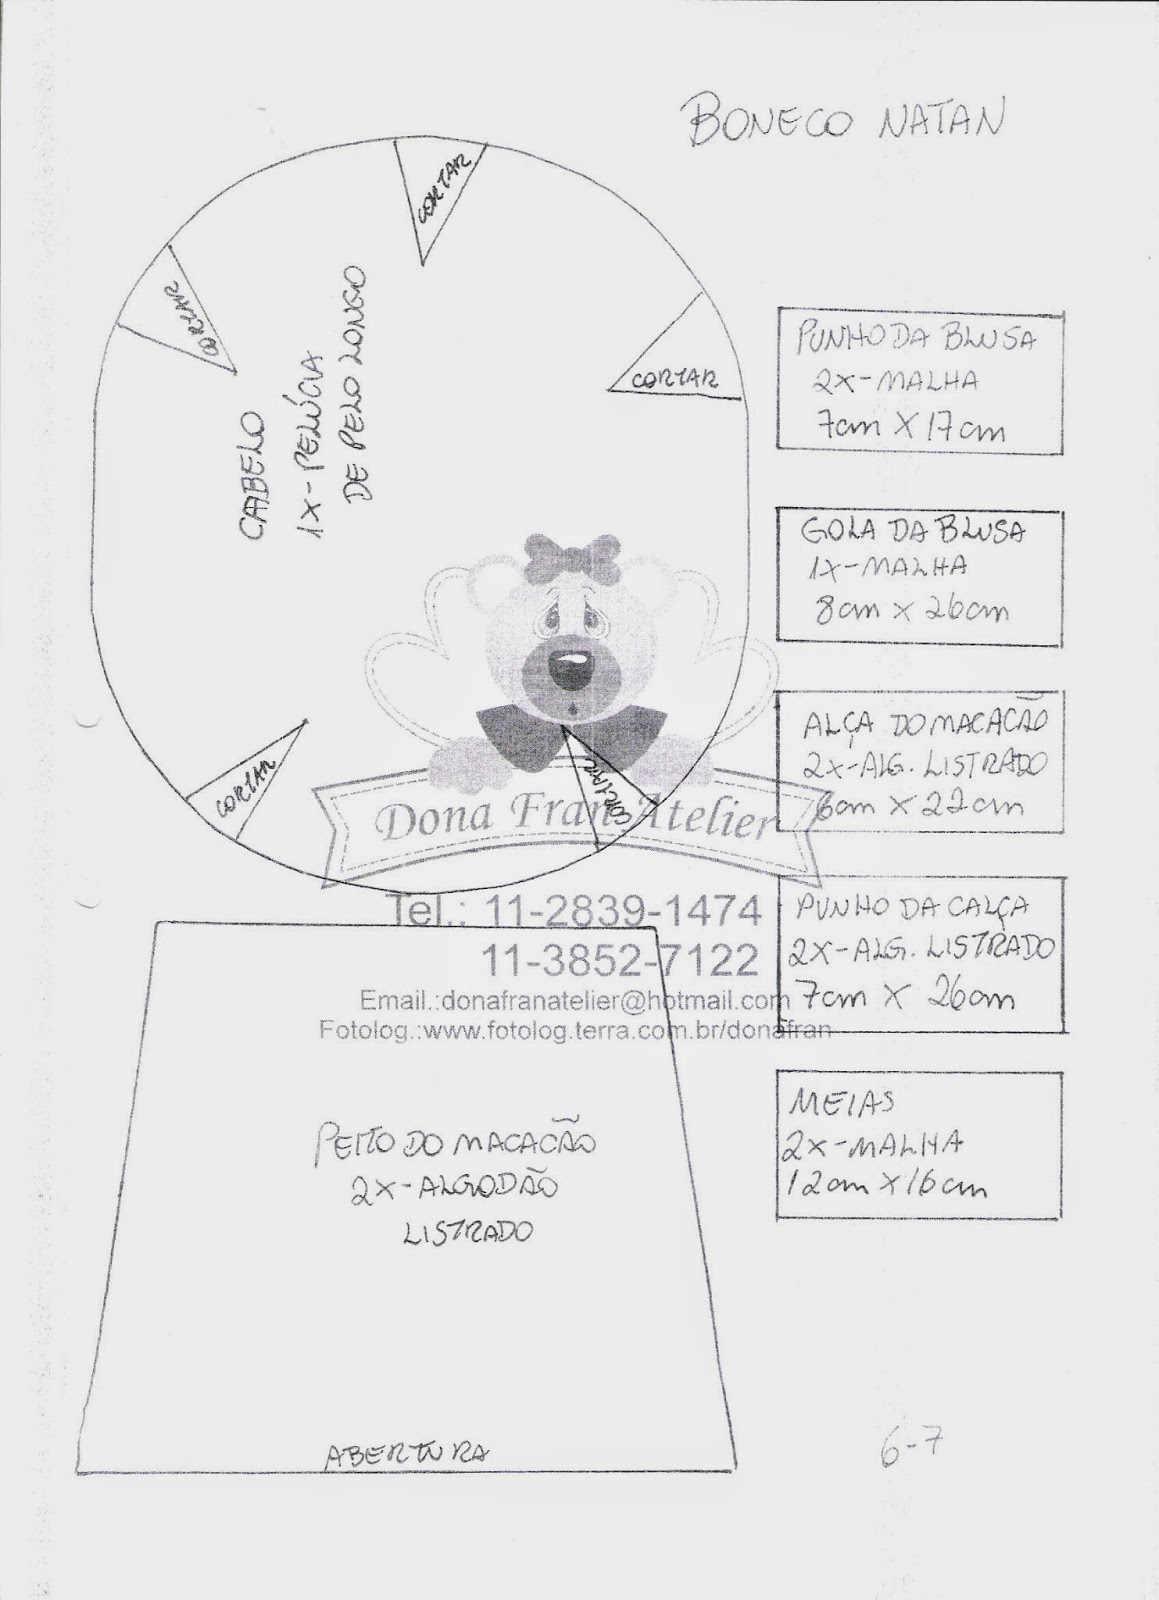 BONECO NATAN
CORTAR
CORTAR
CORTAR
CABELO
1X-PELÚCIA
DE PELO LONGO
CORTAR
CORTAR
PUNHO DA BLUSA
2X-MALHA
7cm X 17cm
GOLA DA BLUSA
1X-MALHA
8cm x 26cm
ALÇA DO MACACÃO
2X-ALG. LISTRADO
6cm X 22cm
PUNHO DA CALÇA
2X-ALG. LISTRADO
7cm X 26cm
MEIAS
2X-MALHA
12cm X 16cm
Dona Fran Atelier
Tel.: 11-2839-1474
11-3852-7122
Email.:donafranatelier@hotmail.com
Fotolog.:www.fotolog.terra.com.br/donafran
PEITO DO MACACÃO
2X-ALGODÃO
LISTRADO
ABERTURA
6-7